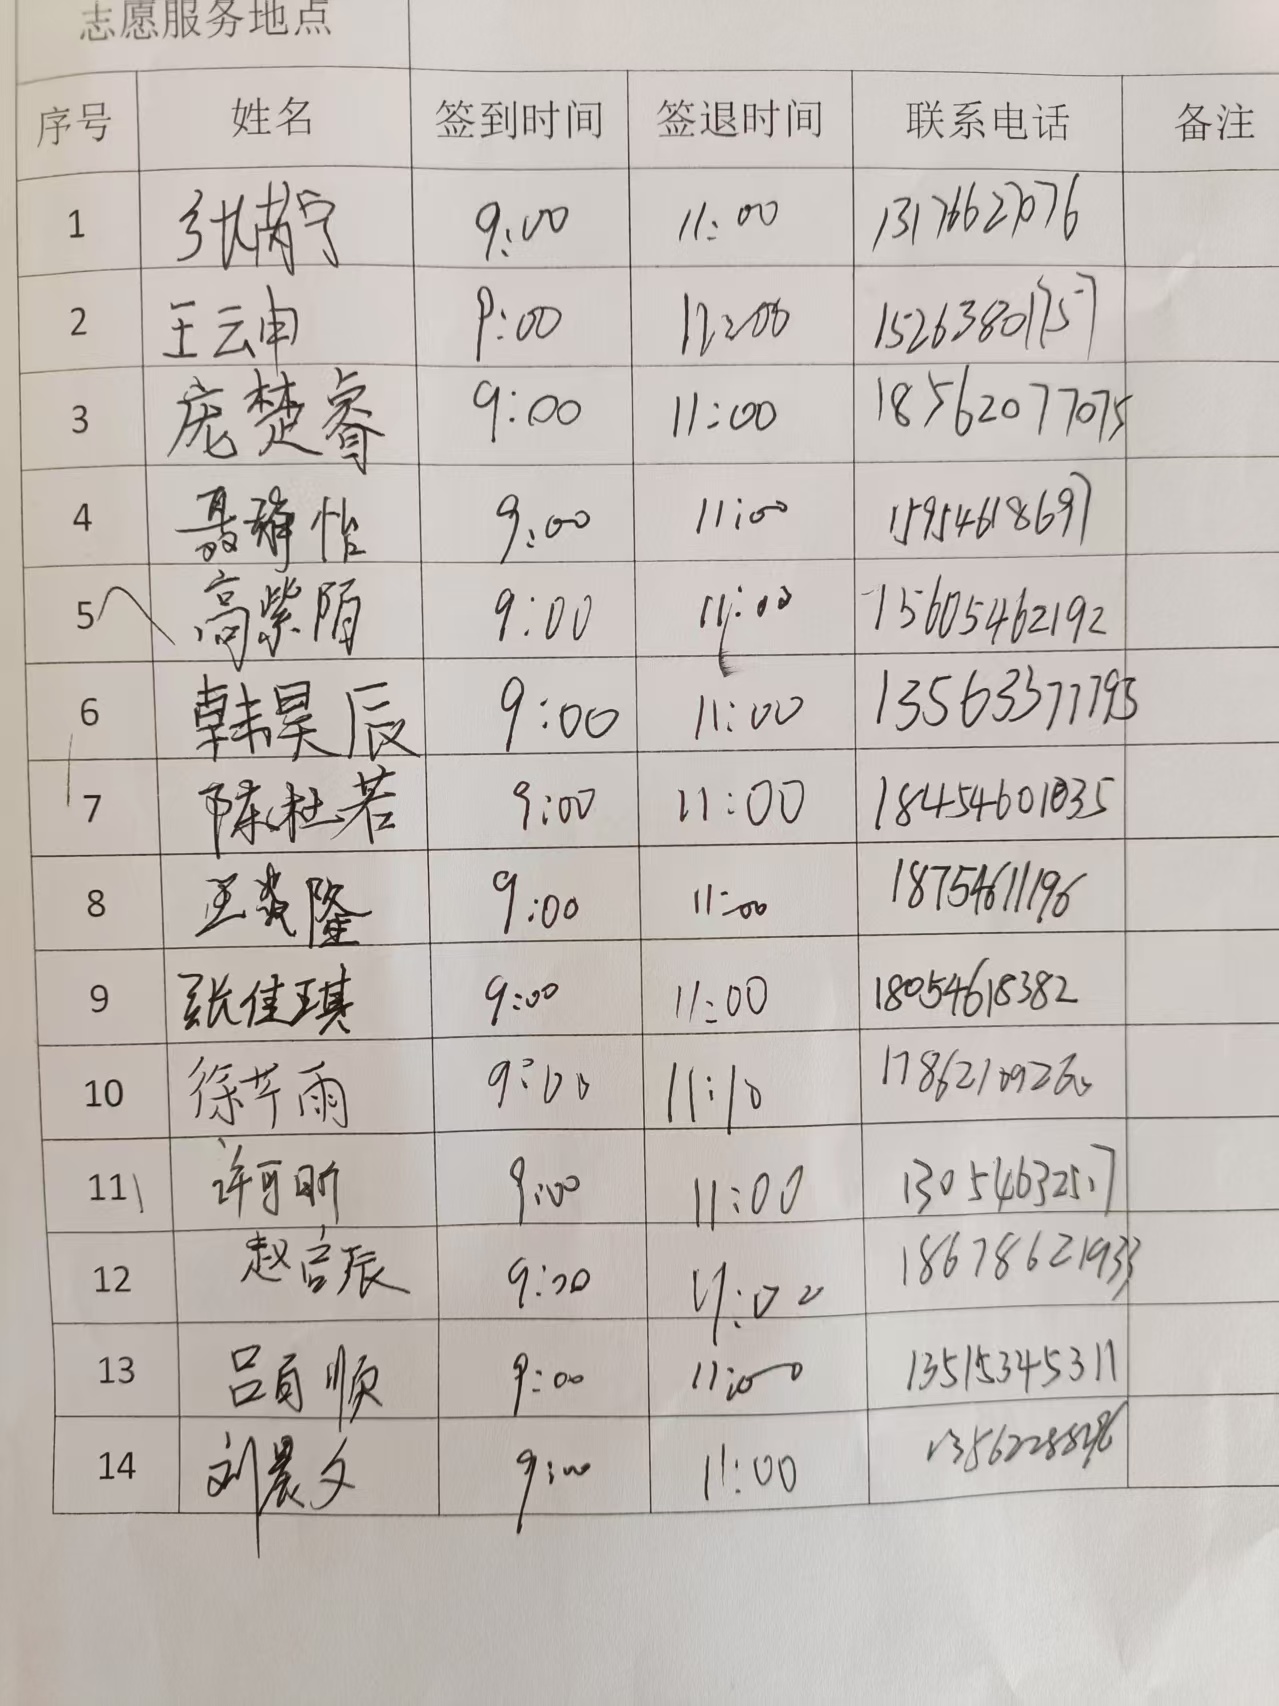 志愿服务地点
序号 姓名 签到时间 签退时间 联系电话 备注
1 9:00 11:00 13176627076
2 王云申 9:00 15263801757
3 庞楚睿 9:00 11:00 18562077075
4 聂静怡 9:00 11:00 15954618697
5 高紫陌 9:00 11:00 15605462192
6 韩昊辰 9:00 11:00 13563377795
7 陈杜若 9:00 11:00 18454601035
8 9:00 11:00 18754611196
9 张佳琪 9:00 11:00 18054618382
10 徐芊雨 9:00 11:10
11 许可昕 9:00 11:00
12 赵启辰 9:00 11:00 18678621933
13 9:00 11:00 13515345311
14 刘晨文 9:00 11:00